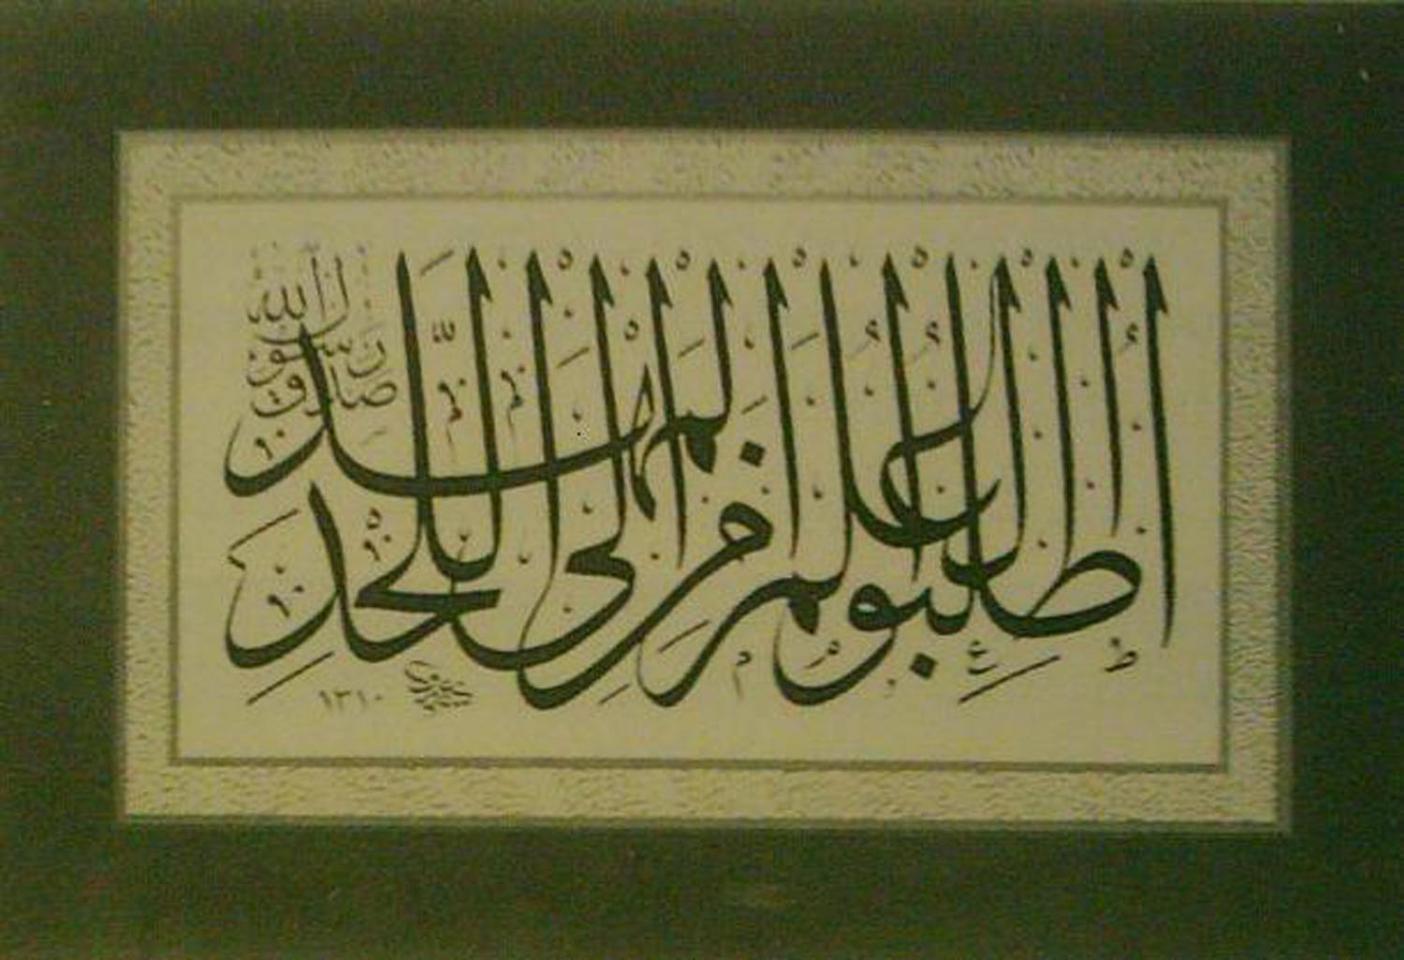 اطلبوا العلم من المهد الى اللحد
صدق رسول الله
١٣١٠